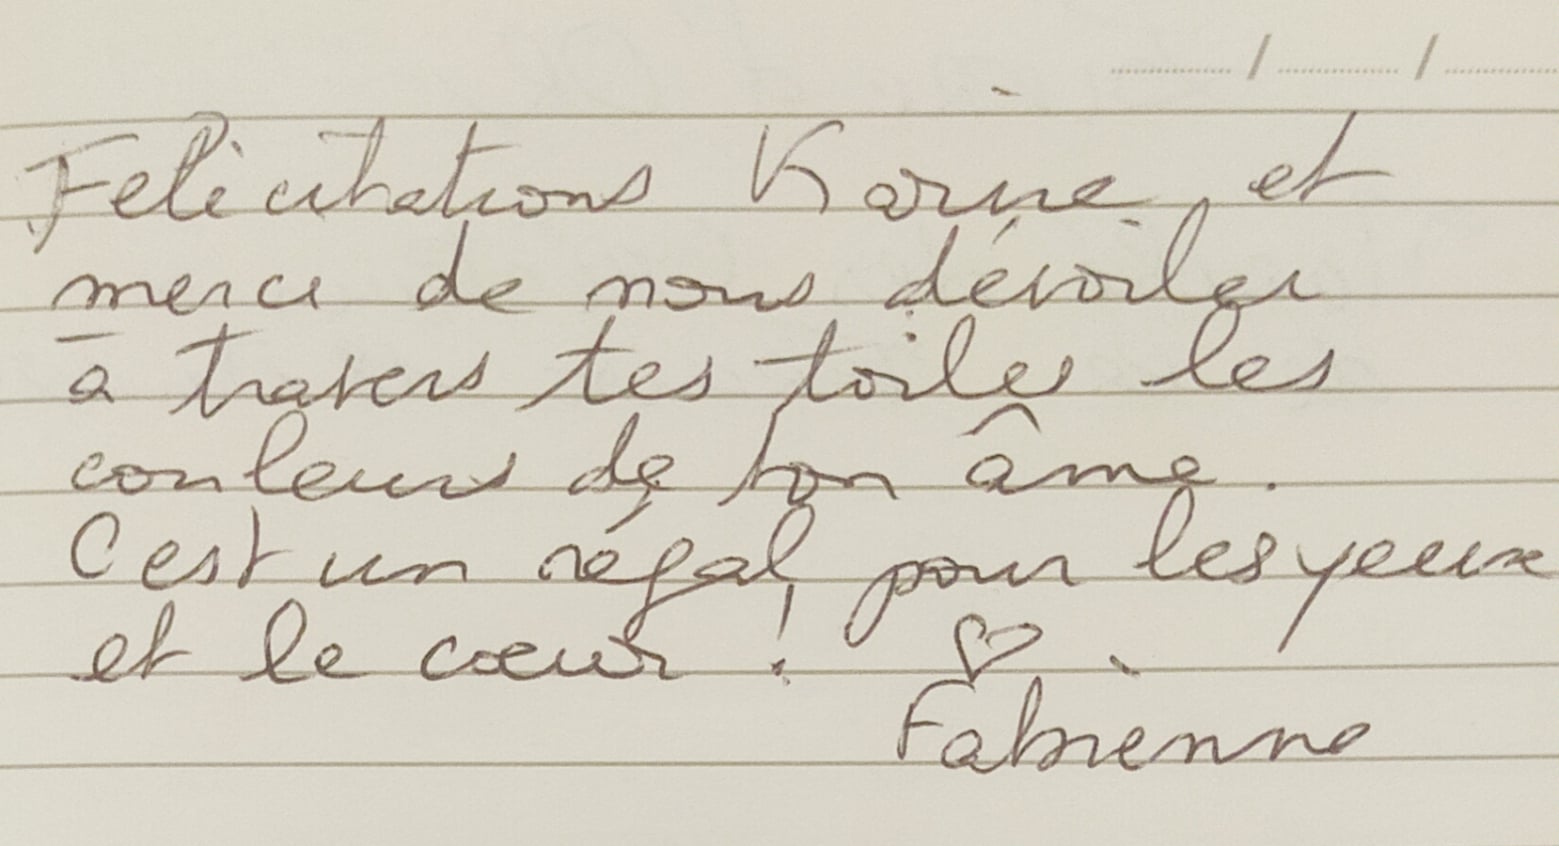 Felicitations Karine, et
merci de nous dévoiler
à travers tes toiles les
couleurs de ton âme.
C'est un régal pour les yeux
et le cœur ! ♡
Fabienne